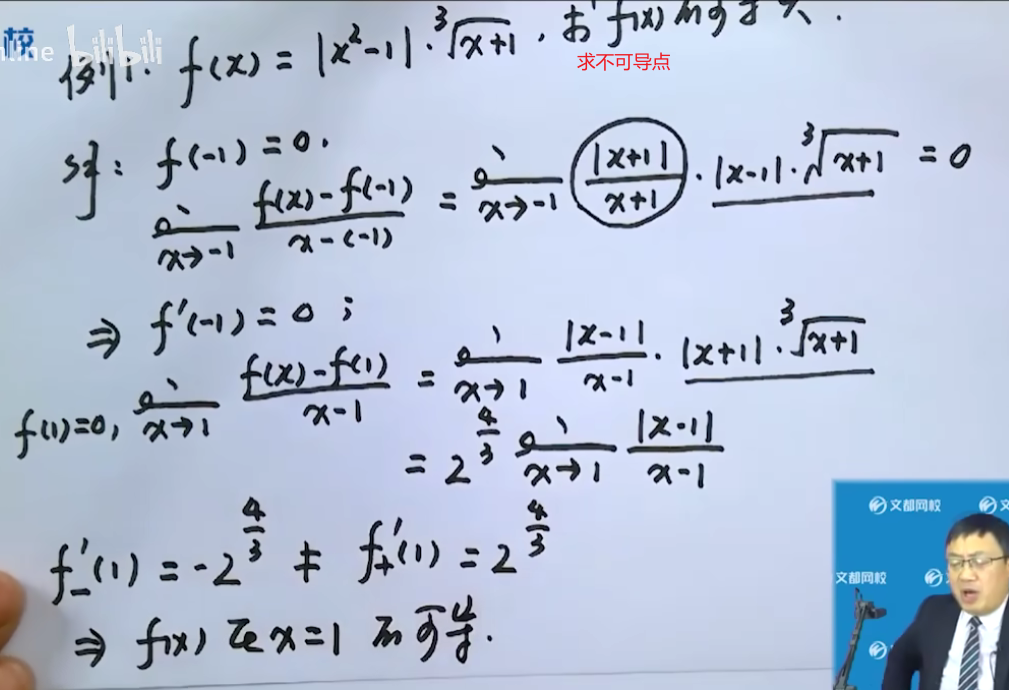 校
nline bilibili
例1. f(x) = |x²-1|·∛(x+1), 求 f(x) 的不可导点.
求不可导点
解: f(-1) = 0.
lim x→-1 (f(x)-f(-1))/(x-(-1)) = lim x→-1 |x+1|/(x+1) · |x-1|·∛(x+1) = 0
⇒ f'(-1) = 0 ;
f(1)=0, lim x→1 (f(x)-f(1))/(x-1) = lim x→1 |x-1|/(x-1) · |x+1|·∛(x+1)
= 2^(4/3) lim x→1 |x-1|/(x-1)
f₋'(1) = -2^(4/3) ≠ f₊'(1) = 2^(4/3)
⇒ f(x) 在 x=1 不可导.
文都网校
文都网校